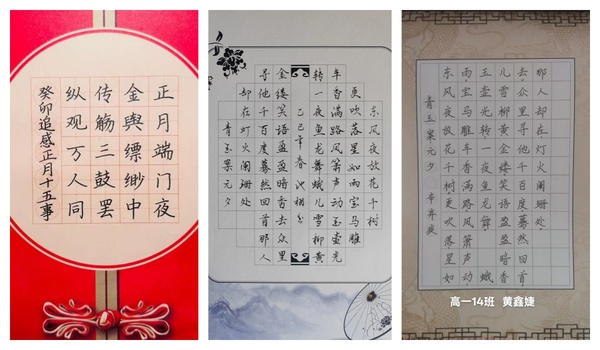 正月端门夜
金舆缥缈中
传觞三鼓罢
纵观万人同
癸卯追感正月十五事
东风夜放花千树
更吹落星如雨宝马雕
车香满路风箫声动玉壶光
转一夜鱼龙舞蛾儿雪柳黄
乙巳年春
金缕笑语盈盈暗香去众里
寻他千百度蓦然回首那人
却在灯火阑珊处
青玉案元夕
青玉案元夕 辛弃疾
东风夜放花千树更吹落星如
雨宝马雕车香满路风箫声动
玉壶光转一夜鱼龙舞蛾
儿雪柳黄金缕笑语盈盈暗香
去众里寻他千百度蓦然回首
那人却在灯火阑珊处
高一14班 黄鑫婕